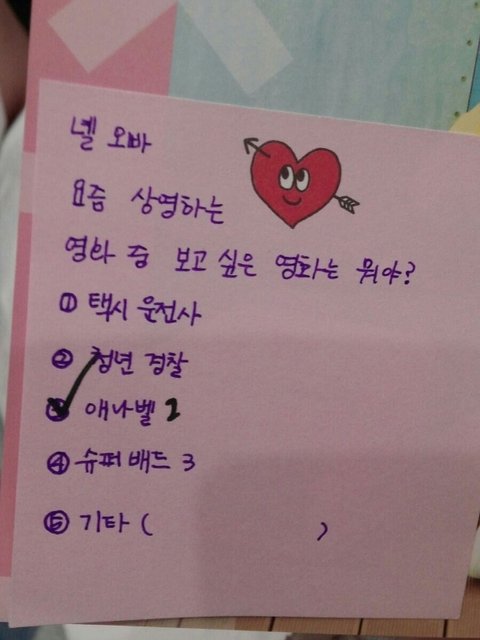 넬 오빠
요즘 상영하는
영화 중 보고 싶은 영화는 뭐야?
① 택시 운전사
② 청년 경찰
③ 애나벨 2
④ 슈퍼배드 3
⑤ 기타 ( )